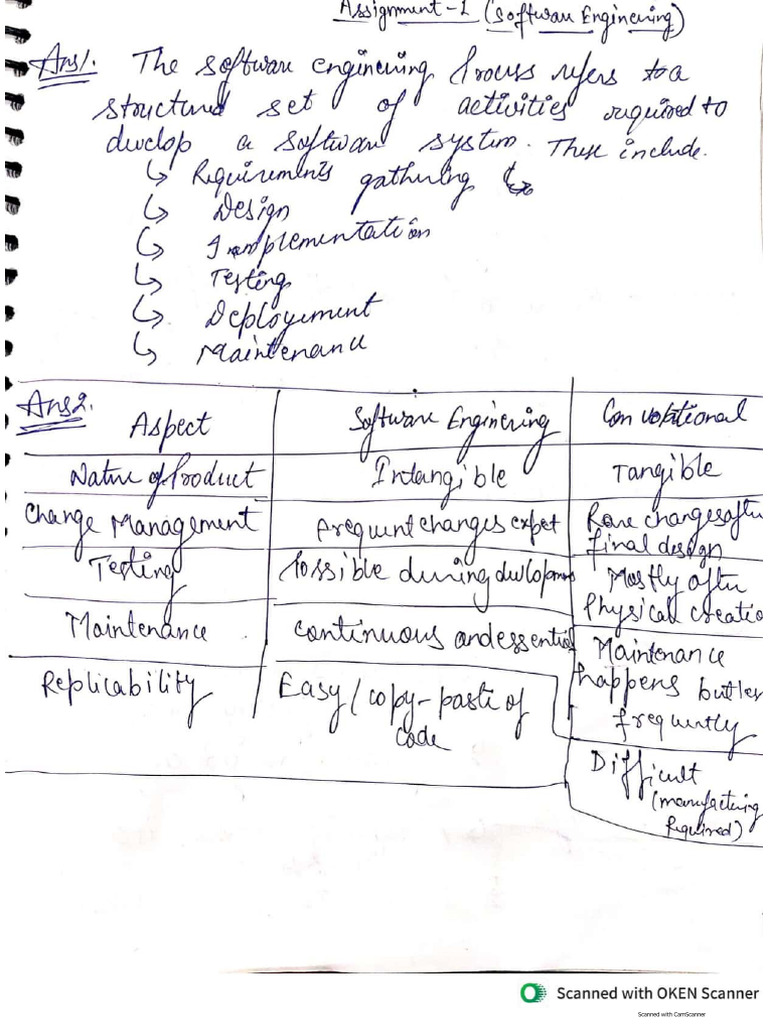 Assignment-1 (Software Enginering)
Ans1. The software enginering Process refers to a
structured set of activities required to
develop a software system. These include.
↳ Requirements gathering
↳ Design
↳ Implementation
↳ Testing
↳ Deployement
↳ Maintenance
Ans2.
Aspect | Software Enginering | Convotational
Nature of Product | Intangible | Tangible
Change Management | Frequent changes expet | Rare changes after
final design
Testing | Possible during devlopmen | Mostly after
Physical creatio
Maintenance | continuous and essential | Maintenance
happens but les
frequently
Replicability | Easy/copy-paste of
code
Difficult
(manufacturing
Required)
Scanned with OKEN Scanner
Scanned with CamScanner